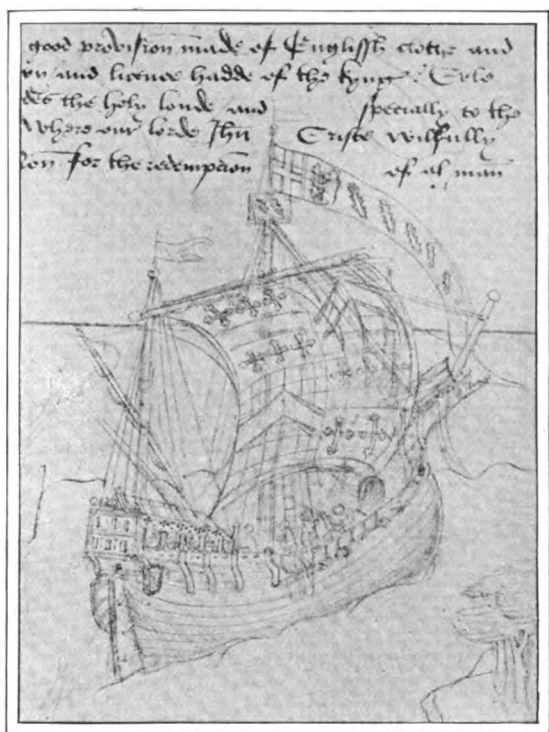 good provision made of Englissh clothe and
and licence hadde of the kyng Erle
the holy londe and specially to the
Where our lorde Jhu Criste wilfully
for the redempcion of al man